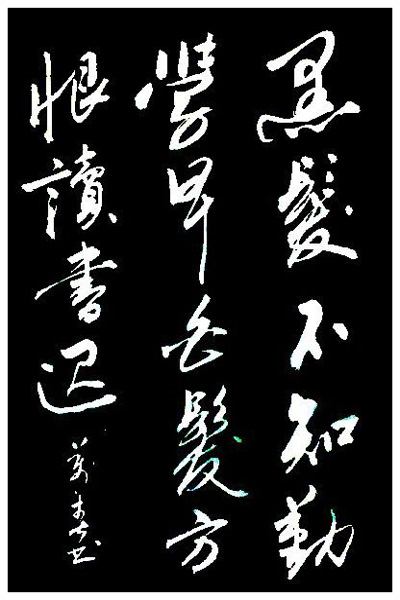 黑髮不知勤
學早白髮方
恨讀書遲